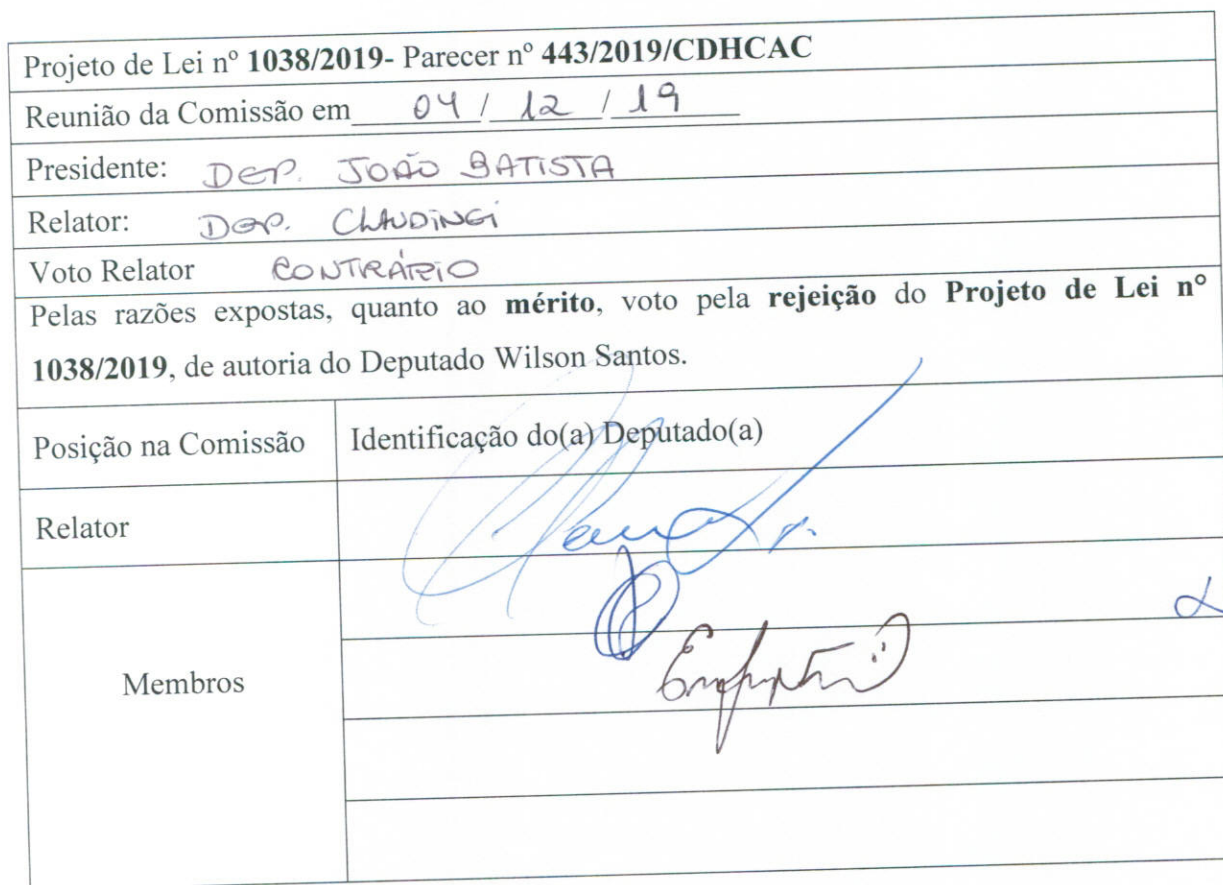 Projeto de Lei nº 1038/2019- Parecer nº 443/2019/CDHCAC
Reunião da Comissão em 04 / 12 / 19
Presidente: DEP. JOÃO BATISTA
Relator: DEP. CLAUDINEI
Voto Relator CONTRÁRIO
Pelas razões expostas, quanto ao mérito, voto pela rejeição do Projeto de Lei nº
1038/2019, de autoria do Deputado Wilson Santos.
Posição na Comissão Identificação do(a) Deputado(a)
Relator
Membros